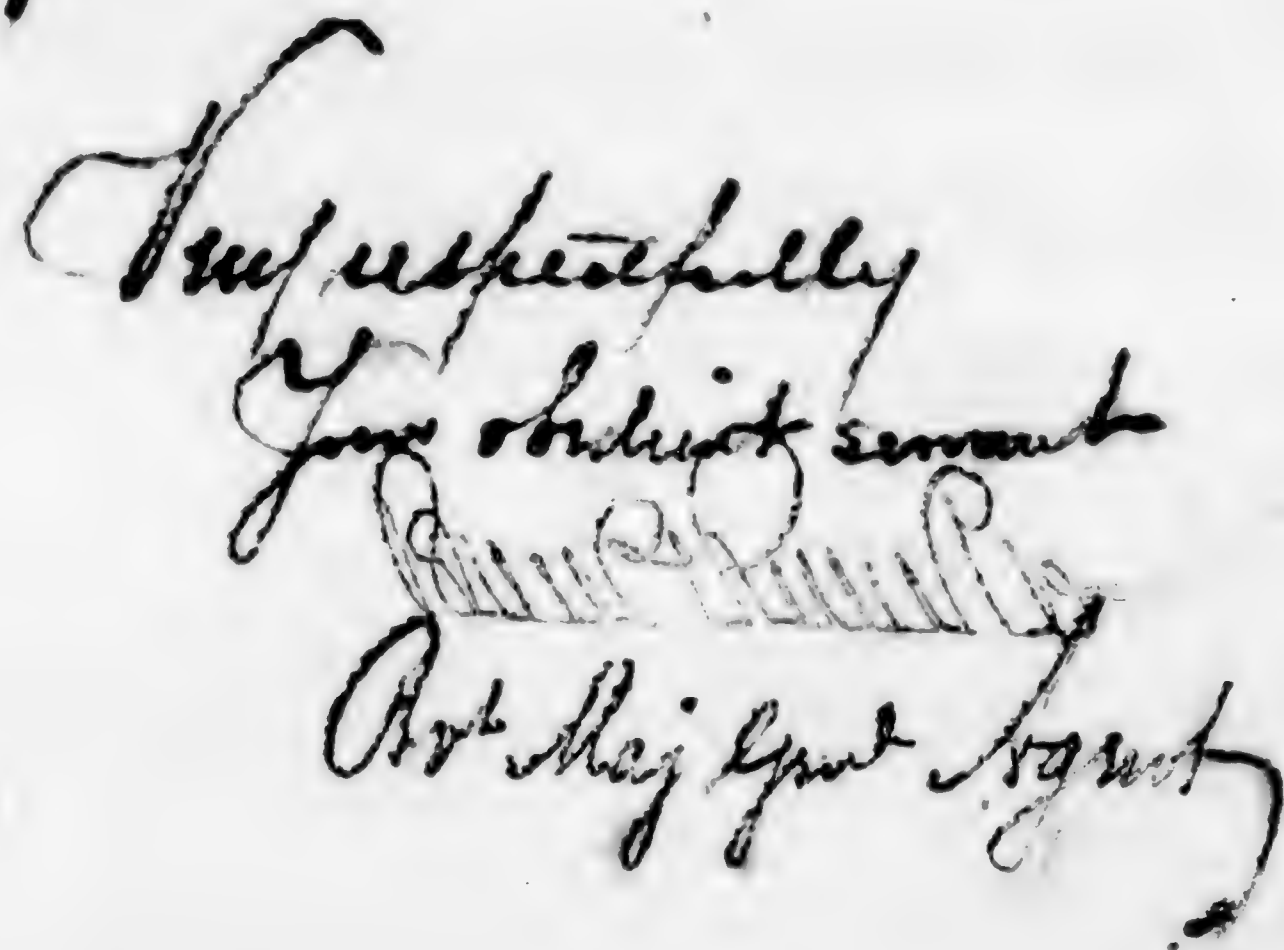 Very respectfully
Your obedient servant
Bvt Maj Genl & Agent